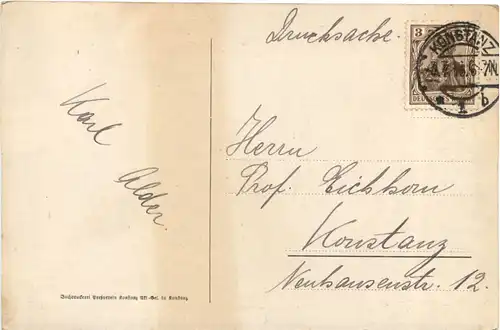 Drucksache.
3
KONSTANZ
Karl Alder.
Herrn
Prof. Eichhorn
Konstanz
Neuhausenstr. 12.
Buchdruckerei Konstanz